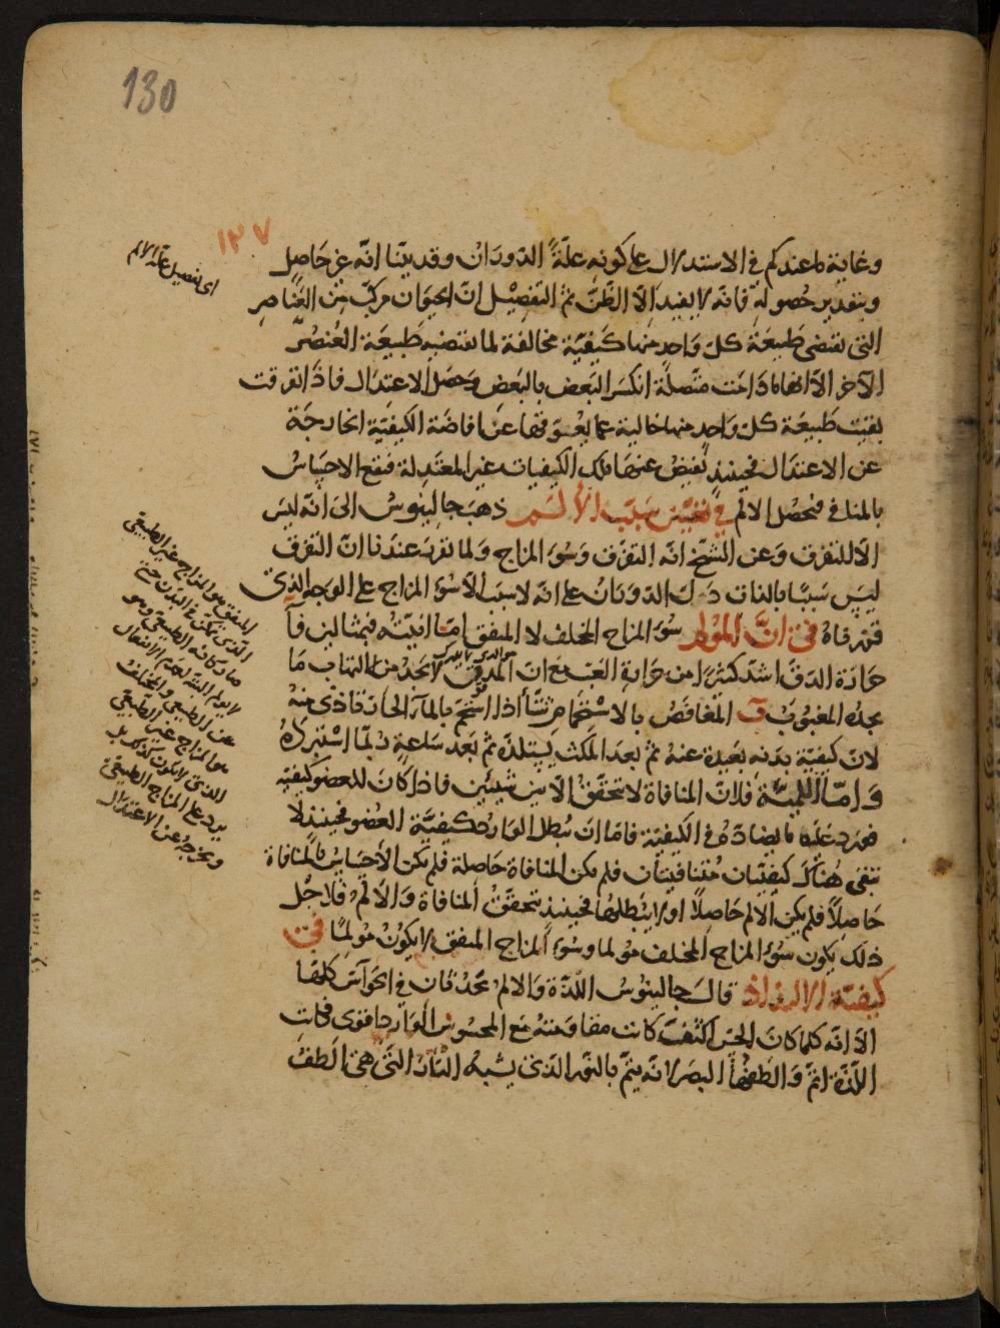 130
١٣٧
وغاية ما عندكم في الاستدلال على كونه علّةً الدّورَانْ وقد بيّنا انّه غير حَاصِل
وبتقدير حُصوله فانّه لا يفيد اِلّا الظّنّ ثمّ التّفصِيْل انّ الحيَوَان مركّبٌ مِن العَنَاصِر
التى تقتضى طَبيعَة كلّ وَاحدٍ منها كَيفيّة مخالفة لما تقتضيه طَبيعَة العُنصُر
الآخر الّا انّها مَادَامَت متّصلَة انكسَر البَعض بالبَعض وحَصَل الاعتدَال فاذَا تفرقت
بقيَت طَبيعَة كلّ وَاحدٍ منها خالية عمّا يعُوقها عَن افاضَة الكيفيّة الخارجَة
عن الاعتدَال فحينئذٍ تُفيضُ عنها تلك الكيفيات الغير المعتَدِلة فيقع الاحسَاسُ
بالمنافى فيحصُل الالَم في تعيّين سَبَب الألَم ذهبَ جالينوسُ الى انّه ليسَ
الّا للتفرّق وَعن الشيخ انّه التفرّق وَسُوءُ المزاج وَلما تقرّر عندَنا انّ التفرّق
ليسَ سَببًا بالذات دَلّ الدّورَانُ على انّه لا سبَب الّا سُوءُ المزاج على الوَجه الذى
قرّرناهُ فى انَّ المُولم سُوءُ المزاج المختلف لا المتفق امّا انيّتُه فبمثالين فَا
حَرَارَة الدقّ اشدّ كثيرًا من حَرَارة الغبّ مع انّ المدقوق لا يجدُ من الالتهاب مَا
يجدُه المغبُوبُ ب المغافصُ بالاستحمَام شتَآءً اذا استحمّ بالمآء الحَارّ تاذّى منْهُ
لانّ كيفيّة بدَنه بَعيدة عنهُ ثمّ بعدَ المكث يستلذّه ثمّ بَعد سَاعةٍ ربّما استبرَدَهُ
وَامّا اللميّة فلانّ المنافاة لا تتحقّقُ الّا بين شيئين فاذا كانَ للعضو كيفيّة
فورَد عَليه مَا يضادّهُ فى الكيفيّة فامّا انّ يُبطل الوَارد كيفيّة العُضو فحينئذٍ لا
تبقى هُناك كيفيّتان مُتنافيتَان فلم يكن المنافاة حَاصلة فلم يكن الاحسَاسُ بالمنافاة
حَاصلًا فلم يكن الالم حَاصِلًا او لا يُبطلهَا فحينئذٍ تتحقّقُ المنافاة وَالالمُ فلاجْل
ذلكَ يكون سُوءُ المزاج المختلف مولمًا وسُوءُ المزاج المتفق لا يكُونُ مُولمًا فى
كيفيّة الالتذاذ قالَ جالينُوسُ اللّذّة وَالالم يحدُثان فى الحَوآسّ كلهَا
الّا انّه كلّما كانَ الحسّ اكثفَ كانت مقاومتهُ مَع المحسُوسُ الوَارد اقوى فكانت
اللّذّة اتمّ وَالطَفهَا البصَر لانّه يتمّ بالنّور الذى يشبهُ النّار التى هى الطفُ
اى تفصيل علة الالم
المتفق هو المزاج غير الطبيعى
الذى تمكّن فى البَدن حتى
صار كانّه الطبيعى وهو
لا يولم البتّة لعدَم الانفعال
عن الطبيعى والمختلف
هو المزاج غير الطبيعى
الذى لا يكون كذلك بل
يرد على المزاج الطبيعى
ويخرجُه عن الاعتدال